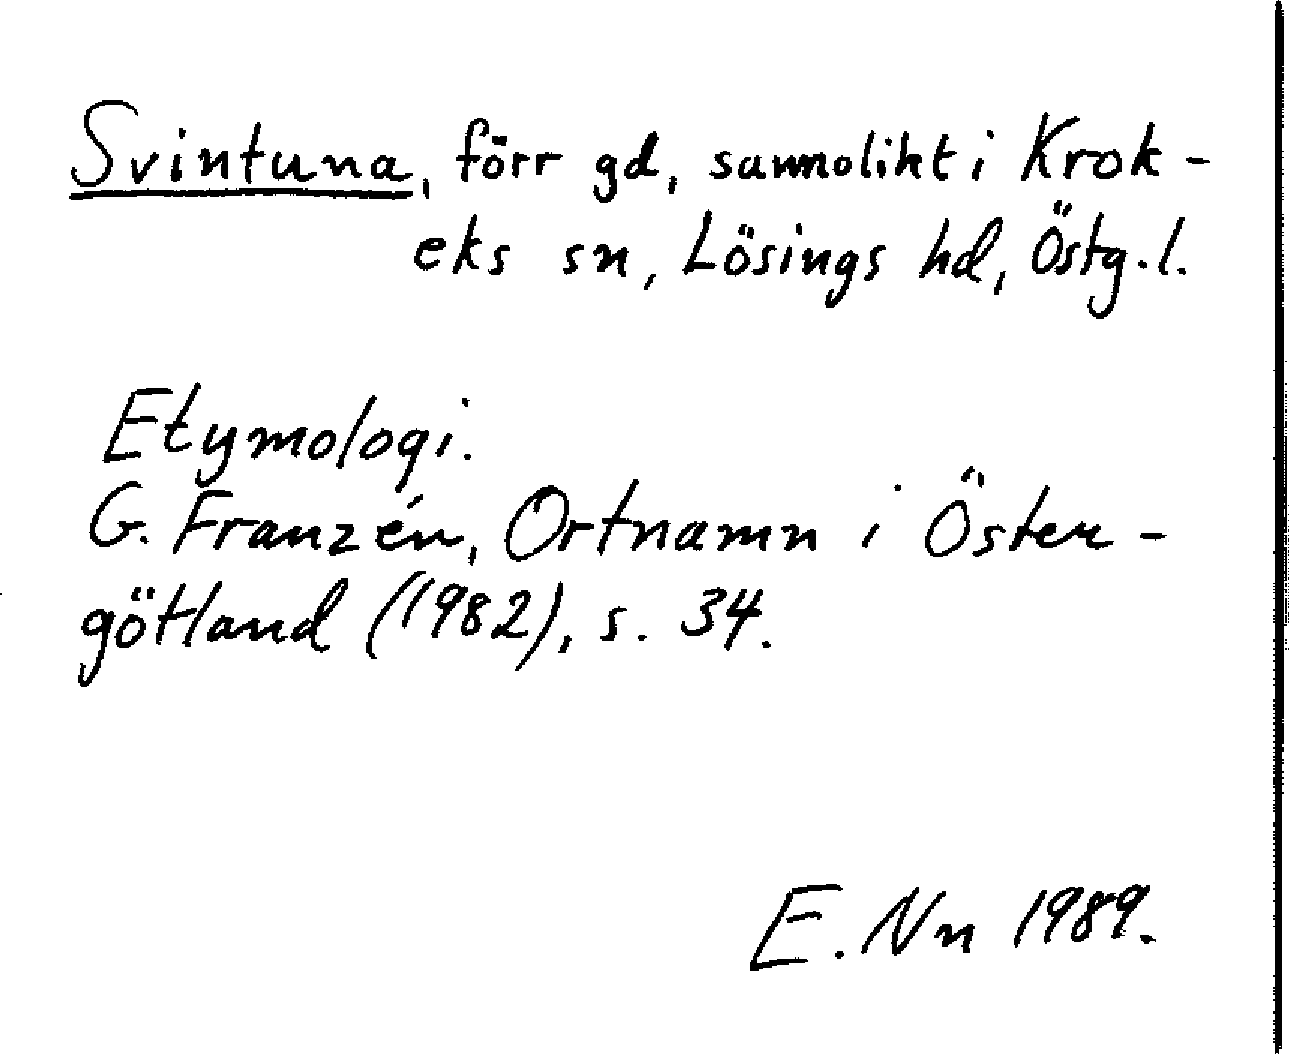 Svintuna, förr gd, sannolikt i Krok-
eks sn, Lösings hd, Östg.l.
Etymologi.
G. Franzén, Ortnamn i Öster-
götland (1982), s. 34.
E. Nn 1989.